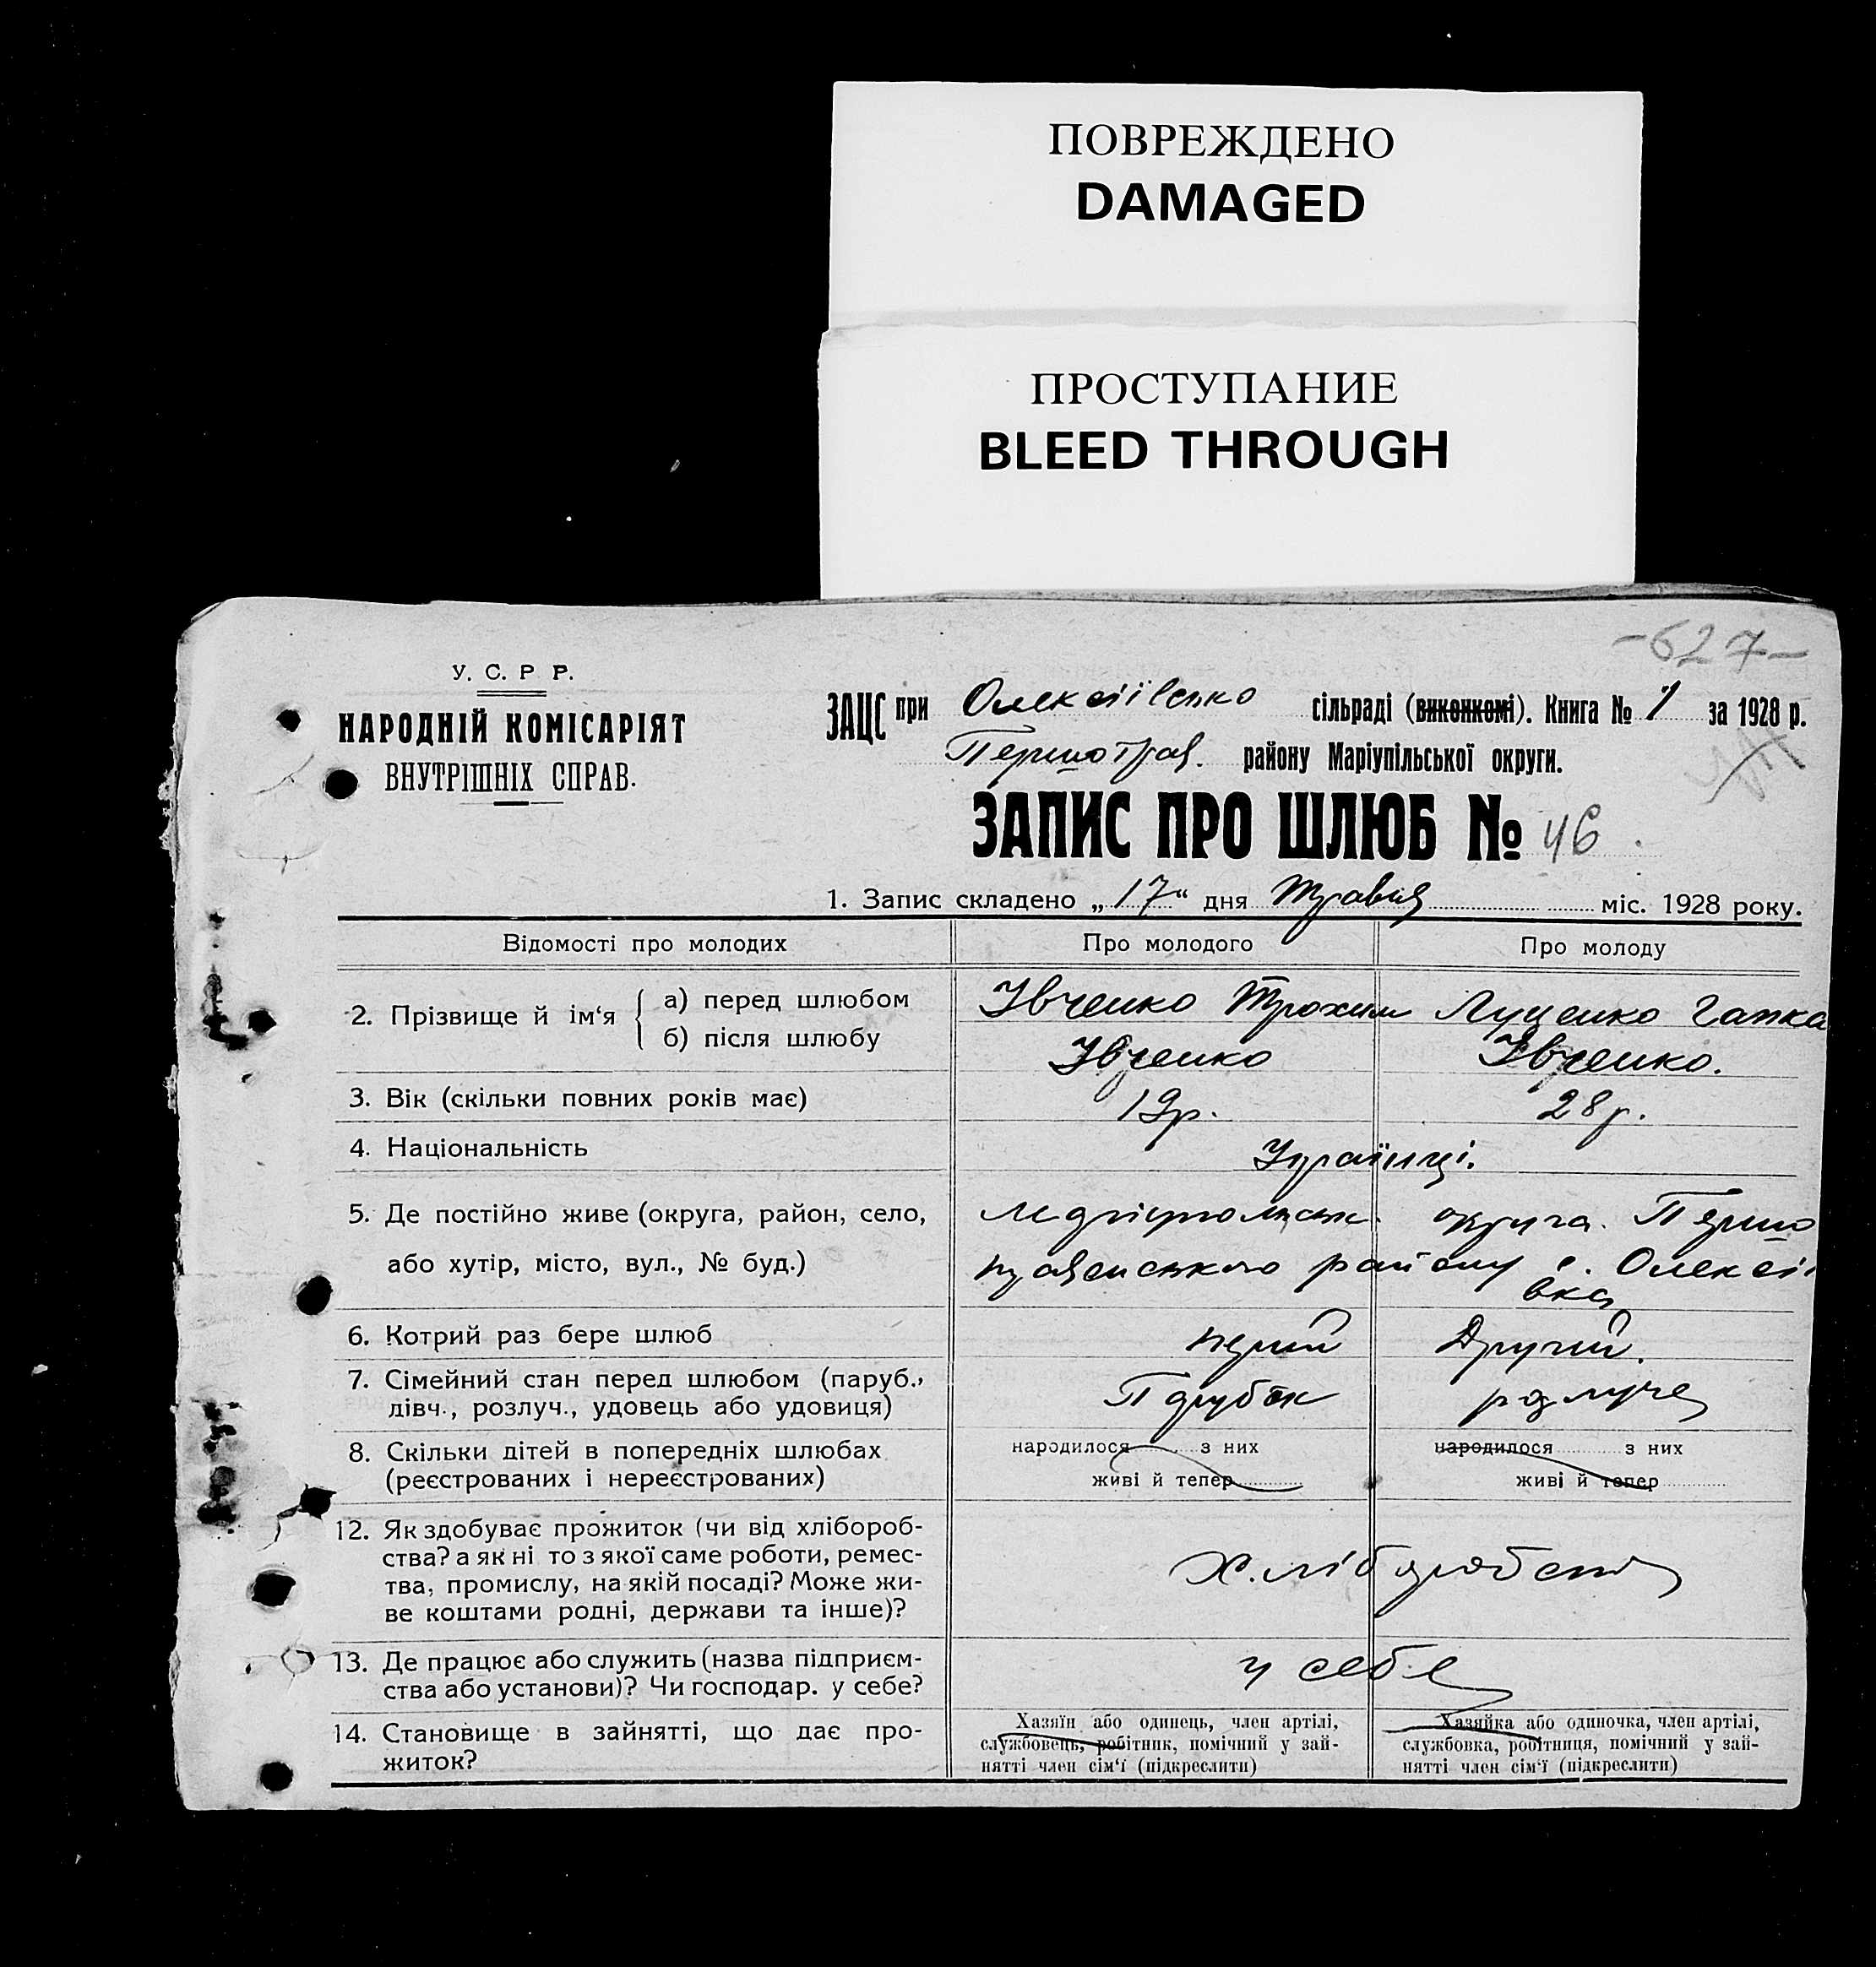 ПОВРЕЖДЕНО
DAMAGED
ПРОСТУПАНИЕ
BLEED THROUGH
-627-
У. С. Р Р.
НАРОДНІЙ КОМІСАРІЯТ
ВНУТРІШНІХ СПРАВ.
ЗАЦС при Олексіївсько сільраді (виконкомі). Книга № 1 за 1928 р.
Першотрав. району Маріупільської округи.
ЗАПИС ПРО ШЛЮБ № 46
1. Запис складено „17“ дня Травня міс. 1928 року.
Відомості про молодих Про молодого Про молоду
2. Прізвище й ім‘я { а) перед шлюбом Івченко Трохим Луценко Гапка
б) після шлюбу Івченко Івченко.
3. Вік (скільки повних років має) 19р. 28р.
4. Національність Українці.
5. Де постійно живе (округа, район, село, Маріупольськ. округа. Першо
або хутір, місто, вул., № буд.) травенського району с. Олексії
вка
6. Котрий раз бере шлюб перший Другий.
7. Сімейний стан перед шлюбом (паруб., Парубок розлуче
дівч., розлуч., удовець або удовиця)
8. Скільки дітей в попередніх шлюбах народилося з них народилося з них
(реєстрованих і нереєстрованих) живі й тепер живі й тепер
12. Як здобуває прожиток (чи від хлібороб-
ства? а як ні то з якої саме роботи, ремес- Хліборобств
тва, промислу, на якій посаді? Може жи-
ве коштами родні, держави та інше)?
13. Де працює або служить (назва підприєм- у себе
ства або установи)? Чи господар. у себе?
14. Становище в зайнятті, що дає про- Хазяїн або одинець, член артілі, Хазяйка або одиночка, член артілі,
житок? службовець, робітник, помічний у зай- службовка, робітниця, помічний у зай-
нятті член сім‘ї (підкреслити) нятті член сім‘ї (підкреслити)